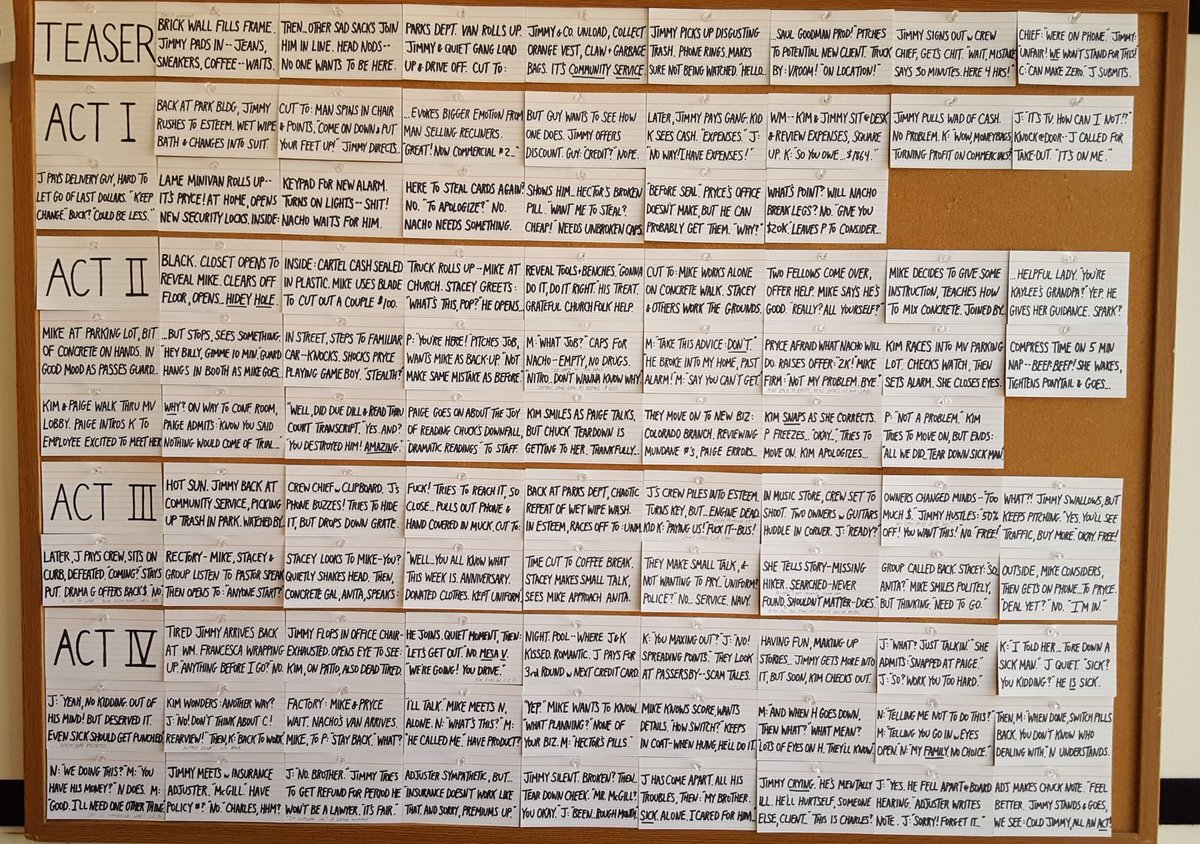 TEASER
BRICK WALL FILLS FRAME.
JIMMY PADS IN-- JEANS,
SNEAKERS, COFFEE-- WAITS.
THEN... OTHER SAD SACKS JOIN
HIM IN LINE. HEAD NODS--
NO ONE WANTS TO BE HERE.
PARKS DEPT. VAN ROLLS UP.
JIMMY & QUIET GANG LOAD
UP & DRIVE OFF. CUT TO:
JIMMY & CO. UNLOAD, COLLECT
ORANGE VEST, CLAW & GARBAGE
BAGS. IT'S COMMUNITY SERVICE.
JIMMY PICKS UP DISGUSTING
TRASH. PHONE RINGS. MAKES
SURE NOT BEING WATCHED. "HELLO...
...SAUL GOODMAN PROD!" PITCHES
TO POTENTIAL NEW CLIENT. TRUCK
BY: VROOM! "ON LOCATION!"
JIMMY SIGNS OUT w CREW
CHIEF, GETS CHIT. "WAIT, MISTAKE
SAYS 30 MINUTES. HERE 4 HRS!"
CHIEF: "WERE ON PHONE." JIMMY:
"UNFAIR! WE WON'T STAND FOR THIS!
C: "CAN MAKE ZERO." J SUBMITS.
ACT I
BACK AT PARK BLDG, JIMMY
RUSHES TO ESTEEM. WET WIPE
BATH & CHANGES INTO SUIT.
CUT TO: MAN SPINS IN CHAIR
& POINTS, "COME ON DOWN & PUT
YOUR FEET UP!" JIMMY DIRECTS...
...EVOKES BIGGER EMOTION FROM
MAN SELLING RECLINERS.
GREAT! NOW COMMERCIAL #2...
BUT GUY WANTS TO SEE HOW
ONE DOES. JIMMY OFFERS
DISCOUNT. GUY: "CREDIT?" NOPE.
LATER, JIMMY PAYS GANG. KID
K SEES CASH. "EXPENSES." J:
"NO WAY! I HAVE EXPENSES!"
WM-- KIM & JIMMY SIT @ DESK
& REVIEW EXPENSES, SQUARE
UP. K: "SO YOU OWE... $1864."
JIMMY PULLS WAD OF CASH.
NO PROBLEM. K: "WOW, MONEYBAGS,
TURNING PROFIT ON COMMERCIALS?"
J: "IT'S TV. HOW CAN I NOT!?"
KNOCK @ DOOR-- J CALLED FOR
TAKE-OUT. "IT'S ON ME."
J PAYS DELIVERY GUY, HARD TO
LET GO OF LAST DOLLARS. "KEEP
CHANGE." BUCK? "COULD BE LESS."
LAME MINIVAN ROLLS UP--
IT'S PRYCE! AT HOME, OPENS
NEW SECURITY LOCKS. INSIDE:
KEYPAD FOR NEW ALARM.
TURNS ON LIGHTS-- SHIT!
NACHO WAITS FOR HIM.
HERE TO STEAL CARDS AGAIN?
NO. "TO APOLOGIZE?" NO.
NACHO NEEDS SOMETHING.
SHOWS HIM... HECTOR'S BROKEN
PILL. "WANT ME TO STEAL?
CHEAP!" NEEDS UNBROKEN CAPS.
"BEFORE SEAL." PRYCE'S OFFICE
DOESN'T MAKE, BUT HE CAN
PROBABLY GET THEM. "WHY?"
WHAT'S POINT? WILL NACHO
BREAK LEGS? NO. "GIVE YOU
$20K." LEAVES P TO CONSIDER...
ACT II
BLACK. CLOSET OPENS TO
REVEAL MIKE. CLEARS OFF
FLOOR, OPENS... HIDEY HOLE.
INSIDE: CARTEL CASH SEALED
IN PLASTIC. MIKE USES BLADE
TO CUT OUT A COUPLE $100.
TRUCK ROLLS UP-- MIKE AT
CHURCH. STACEY GREETS:
"WHAT'S THIS, POP?" HE OPENS...
REVEAL TOOLS & BENCHES. "GONNA
DO IT, DO IT RIGHT." HIS TREAT.
GRATEFUL CHURCH FOLK HELP.
CUT TO: MIKE WORKS ALONE
ON CONCRETE WALK. STACEY
& OTHERS WORK THE GROUNDS.
TWO FELLOWS COME OVER,
OFFER HELP. MIKE SAYS HE'S
GOOD. "REALLY? ALL YOURSELF?"
MIKE DECIDES TO GIVE SOME
INSTRUCTION, TEACHES HOW
TO MIX CONCRETE. JOINED BY...
...HELPFUL LADY. "YOU'RE
KAYLEE'S GRANDPA?" YEP. HE
GIVES HER GUIDANCE. SPARK?
MIKE AT PARKING LOT, BIT
OF CONCRETE ON HANDS. IN
GOOD MOOD AS PASSES GUARD...
...BUT STOPS, SEES SOMETHING.
"HEY BILLY, GIMME 10 MIN." GUARD
HANGS IN BOOTH AS MIKE GOES.
IN STREET, STEPS TO FAMILIAR
CAR-- KNOCKS. SHOCKS PRYCE
PLAYING GAME BOY. "STEALTH?"
P: "YOU'RE HERE! PITCHES JOB,
WANTS MIKE AS BACK-UP. "NOT
MAKE SAME MISTAKE AS BEFORE."
M: "WHAT JOB?" CAPS FOR
NACHO-- EMPTY, NO DRUGS.
NITRO... DON'T WANNA KNOW WHY.
M: "TAKE THIS ADVICE: DON'T."
HE BROKE INTO MY HOME, PAST
ALARM! M: "SAY YOU CAN'T GET."
PRYCE AFRAID WHAT NACHO WILL
DO. RAISES OFFER: "2K!" MIKE
FIRM: "NOT MY PROBLEM. BYE."
KIM RACES INTO MV PARKING
LOT. CHECKS WATCH, THEN
SETS ALARM. SHE CLOSES EYES.
COMPRESS TIME ON 5 MIN
NAP-- BEEP-BEEP! SHE WAKES,
TIGHTENS PONYTAIL & GOES...
KIM & PAIGE WALK THRU MV
LOBBY. PAIGE INTROS K TO
EMPLOYEE EXCITED TO MEET HER.
WHY? ON WAY TO CONF ROOM,
PAIGE ADMITS: KNOW YOU SAID
NOTHING WOULD COME OF TRIAL...
"WELL, DID DUE DILL & READ THRU
COURT TRANSCRIPT." "YES. AND?"
"YOU DESTROYED HIM! AMAZING."
PAIGE GOES ON ABOUT THE JOY
OF READING CHUCK'S DOWNFALL,
"DRAMATIC READINGS" TO STAFF.
KIM SMILES AS PAIGE TALKS,
BUT CHUCK TEARDOWN IS
GETTING TO HER. THANKFULLY...
THEY MOVE ON TO NEW BIZ:
COLORADO BRANCH. REVIEWING
MUNDANE #'S, PAIGE ERRORS...
KIM SNAPS AS SHE CORRECTS.
P FREEZES... "OKAY..." TRIES TO
MOVE ON. KIM APOLOGIZES...
P: "NOT A PROBLEM." KIM
TRIES TO MOVE ON, BUT ENDS:
"ALL WE DID... TEAR DOWN SICK MAN."
ACT III
HOT SUN. JIMMY BACK AT
COMMUNITY SERVICE, PICKING
UP TRASH IN PARK. WATCHED BY...
CREW CHIEF w CLIPBOARD. J's
PHONE BUZZES! TRIES TO HIDE
IT, BUT DROPS DOWN GRATE.
FUCK! TRIES TO REACH IT, SO
CLOSE... PULLS OUT PHONE &
HAND COVERED IN MUCK. CUT TO:
BACK AT PARKS DEPT, CHAOTIC
REPEAT OF WET WIPE WASH.
IN ESTEEM, RACES OFF TO: UNM.
J's CREW PILES INTO ESTEEM.
TURNS KEY, BUT... ENGINE DEAD.
KID K: PAYING US! "FUCK IT-- BUS!
IN MUSIC STORE, CREW SET TO
SHOOT. TWO OWNERS w GUITARS
HUDDLE IN CORNER. J: "READY?"
OWNERS CHANGED MINDS-- "TOO
MUCH $." JIMMY HUSTLES: "50%
OFF! YOU WANT THIS! NO. "FREE!"
WHAT?! JIMMY SWALLOWS, BUT
KEEPS PITCHING. "YES, YOU'LL SEE
TRAFFIC, BUY MORE." OKAY. FREE!
LATER, J PAYS CREW, SITS ON
CURB, DEFEATED. "COMING?" STAYS
PUT. DRAMA G OFFERS BACK $. "NO."
RECTORY - MIKE, STACEY &
GROUP LISTEN TO PASTOR SPEAK
THEN OPENS TO: "ANYONE START?"
STACEY LOOKS TO MIKE-- YOU?
QUIETLY SHAKES HEAD. THEN,
CONCRETE GAL, ANITA, SPEAKS:
"WELL... YOU ALL KNOW WHAT
THIS WEEK IS. ANNIVERSARY.
DONATED CLOTHES. KEPT UNIFORM."
TIME CUT TO COFFEE BREAK.
STACEY MAKES SMALL TALK,
SEES MIKE APPROACH ANITA.
THEY MAKE SMALL TALK, &
NOT WANTING TO PRY. "UNIFORM?
POLICE?" NO... SERVICE. NAVY.
SHE TELLS STORY-- MISSING
HIKER. SEARCHED-- NEVER
FOUND, SHOULDN'T MATTER-- DOES.
GROUP CALLED BACK. STACEY: "SO,
ANITA?" MIKE SMILES POLITELY,
BUT THINKING: "NEED TO GO."
OUTSIDE, MIKE CONSIDERS,
THEN GETS ON PHONE... TO PRYCE.
"DEAL YET?" "NO." "I'M IN."
ACT IV
TIRED JIMMY ARRIVES BACK
AT WM. FRANCESCA WRAPPING
UP. "ANYTHING BEFORE I GO?" NO.
JIMMY FLOPS IN OFFICE CHAIR--
EXHAUSTED. OPENS EYE TO SEE:
KIM, ON PATIO, ALSO DEAD TIRED.
HE JOINS. QUIET MOMENT, THEN:
"LET'S GET OUT." NO. MESA V.
"WE'RE GOING! YOU DRIVE."
NIGHT. POOL-- WHERE J&K
KISSED. ROMANTIC. J PAYS FOR
3RD ROUND w NEXT CREDIT CARD.
K: "YOU MAXING OUT?" J: "NO!
SPREADING POINTS." THEY LOOK
AT PASSERSBY-- SCAM TALES.
HAVING FUN, MAKING UP
STORIES. JIMMY GETS MORE INTO
IT, BUT SOON, KIM CHECKS OUT.
J: "WHAT? JUST TALKIN'." SHE
ADMITS: "SNAPPED AT PAIGE."
J: "SO? WORK YOU TOO HARD."
K: "I TOLD HER... TORE DOWN A
SICK MAN." J QUIET. "SICK?
YOU KIDDING?" HE IS SICK.
J: YEAH, NO KIDDING OUT OF
HIS MIND! BUT DESERVED IT.
EVEN SICK SHOULD GET PUNCHED.
KIM WONDERS: ANOTHER WAY?
J: "NO! DON'T THINK ABOUT C!
REARVIEW!" THEN, K: "BACK TO WORK."
FACTORY: MIKE & PRYCE
WAIT. NACHO'S VAN ARRIVES.
MIKE, TO P: "STAY BACK." "WHAT?
"I'LL TALK." MIKE MEETS N,
ALONE. N: "WHAT'S THIS?" M:
"HE CALLED ME." HAVE PRODUCT?
"YEP." MIKE WANTS TO KNOW.
"WHAT PLANNING?" NONE OF
YOUR BIZ. M: "HECTOR'S PILLS."
MIKE KNOWS SCORE, WANTS
DETAILS. "HOW SWITCH?" KEEPS
IN COAT-- WHEN HUNG, HE'LL DO IT.
M: "AND WHEN H GOES DOWN,
THEN WHAT?" WHAT MEAN?
LOTS OF EYES ON H. THEY'LL KNOW.
N: "TELLING ME NOT TO DO THIS?"
M: "TELLING YOU GO IN w EYES
OPEN." N: "MY FAMILY. NO CHOICE."
THEN, M: "WHEN DONE, SWITCH PILLS
BACK. YOU DON'T KNOW WHO
DEALING WITH." N UNDERSTANDS.
N: "WE DOING THIS?" M: "YOU
HAVE HIS MONEY?" N DOES. M:
"GOOD. I'LL NEED ONE OTHER THING."
JIMMY MEETS w INSURANCE
ADJUSTER. "McGILL." HAVE
POLICY #? "NO. 'CHARLES, HHM?'
J: "NO. BROTHER." JIMMY TRIES
TO GET REFUND FOR PERIOD HE
WON'T BE A LAWYER. "IT'S FAIR."
ADJUSTER SYMPATHETIC, BUT...
INSURANCE DOESN'T WORK LIKE
THAT. AND SORRY, PREMIUMS UP.
JIMMY SILENT. BROKEN? THEN...
TEAR DOWN CHEEK. "MR. McGILL?
YOU OKAY." J: "BEEN... ROUGH MONTH."
J HAS COME APART. ALL HIS
TROUBLES, THEN: "MY BROTHER.
SICK. ALONE. I CARED FOR HIM...
JIMMY CRYING. "HE'S MENTALLY
ILL. HE'LL HURT SELF, SOMEONE
ELSE, CLIENT..." "THIS IS CHARLES?"
J: "YES. HE FELL APART @ BOARD
HEARING." ADJUSTER WRITES
NOTE. J: "SORRY! FORGET IT..."
ADJ MAKES CHUCK NOTE. "FEEL
BETTER. JIMMY STANDS & GOES,
WE SEE: COLD JIMMY, ALL AN ACT!